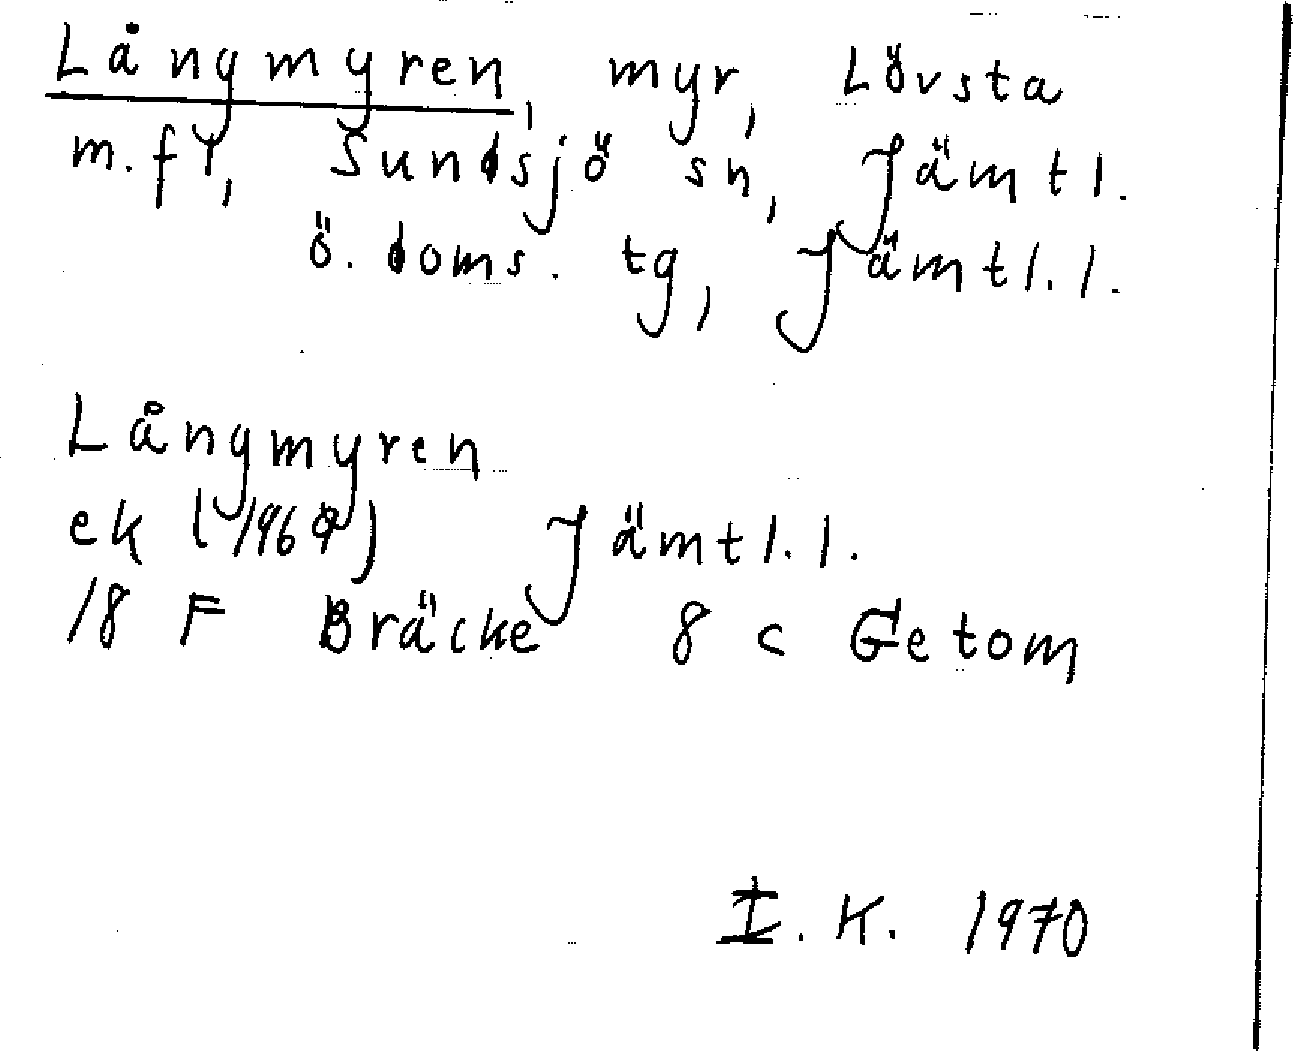 Långmyren, myr, Lövsta
m.fl, Sundsjö sn, Jämtl.
ö. doms. tg, Jämtl. l.
Långmyren
ek (1969) Jämtl. l.
18 F Bräcke 8 c Getom
I. K. 1970